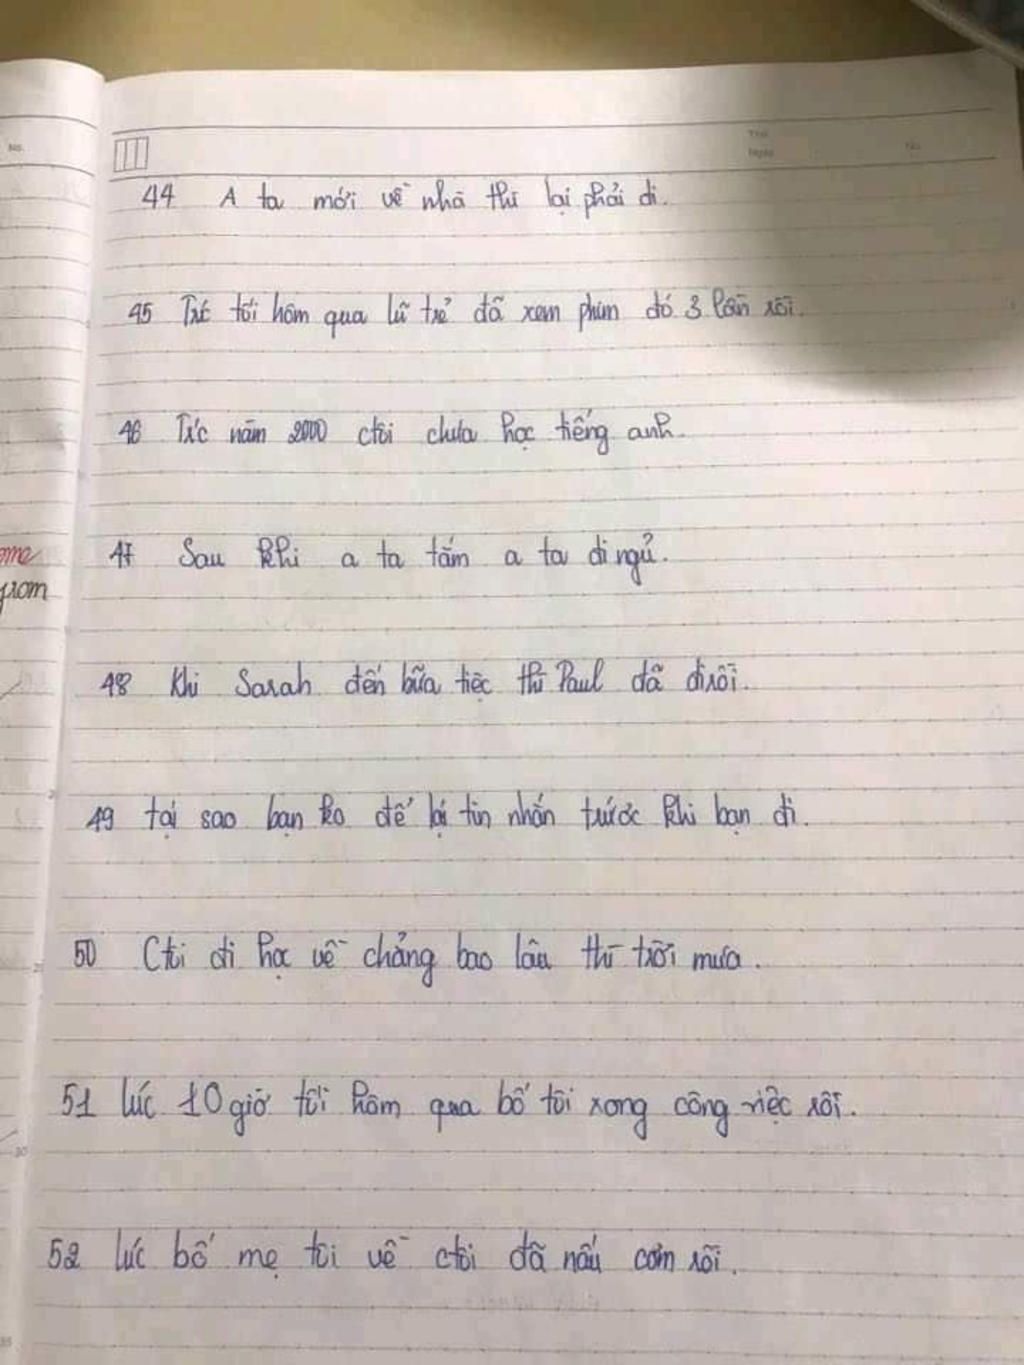 No.
Thứ
Ngày
No.
44 A ta mới về nhà thì lại phải đi.
45 Trc tối hôm qua lũ trẻ đã xem phim đó 3 lần rồi.
46 Trc năm 2000 ctôi chưa học tiếng anh.
47 Sau khi a ta tắm a ta đi ngủ.
ome
from
48 Khi Sarah đến bữa tiệc thì Paul đã đi rồi.
49 tại sao bạn ko để lại tin nhắn trước khi bạn đi.
50 Ctôi đi học về chẳng bao lâu thì trời mưa.
51 lúc 10 giờ tối hôm qua bố tôi xong công việc rồi.
30
52 lúc bố mẹ tôi về ctôi đã nấu cơm rồi.
35